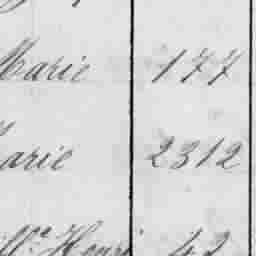 Marie 177
Marie 2312
Vve Henri 42